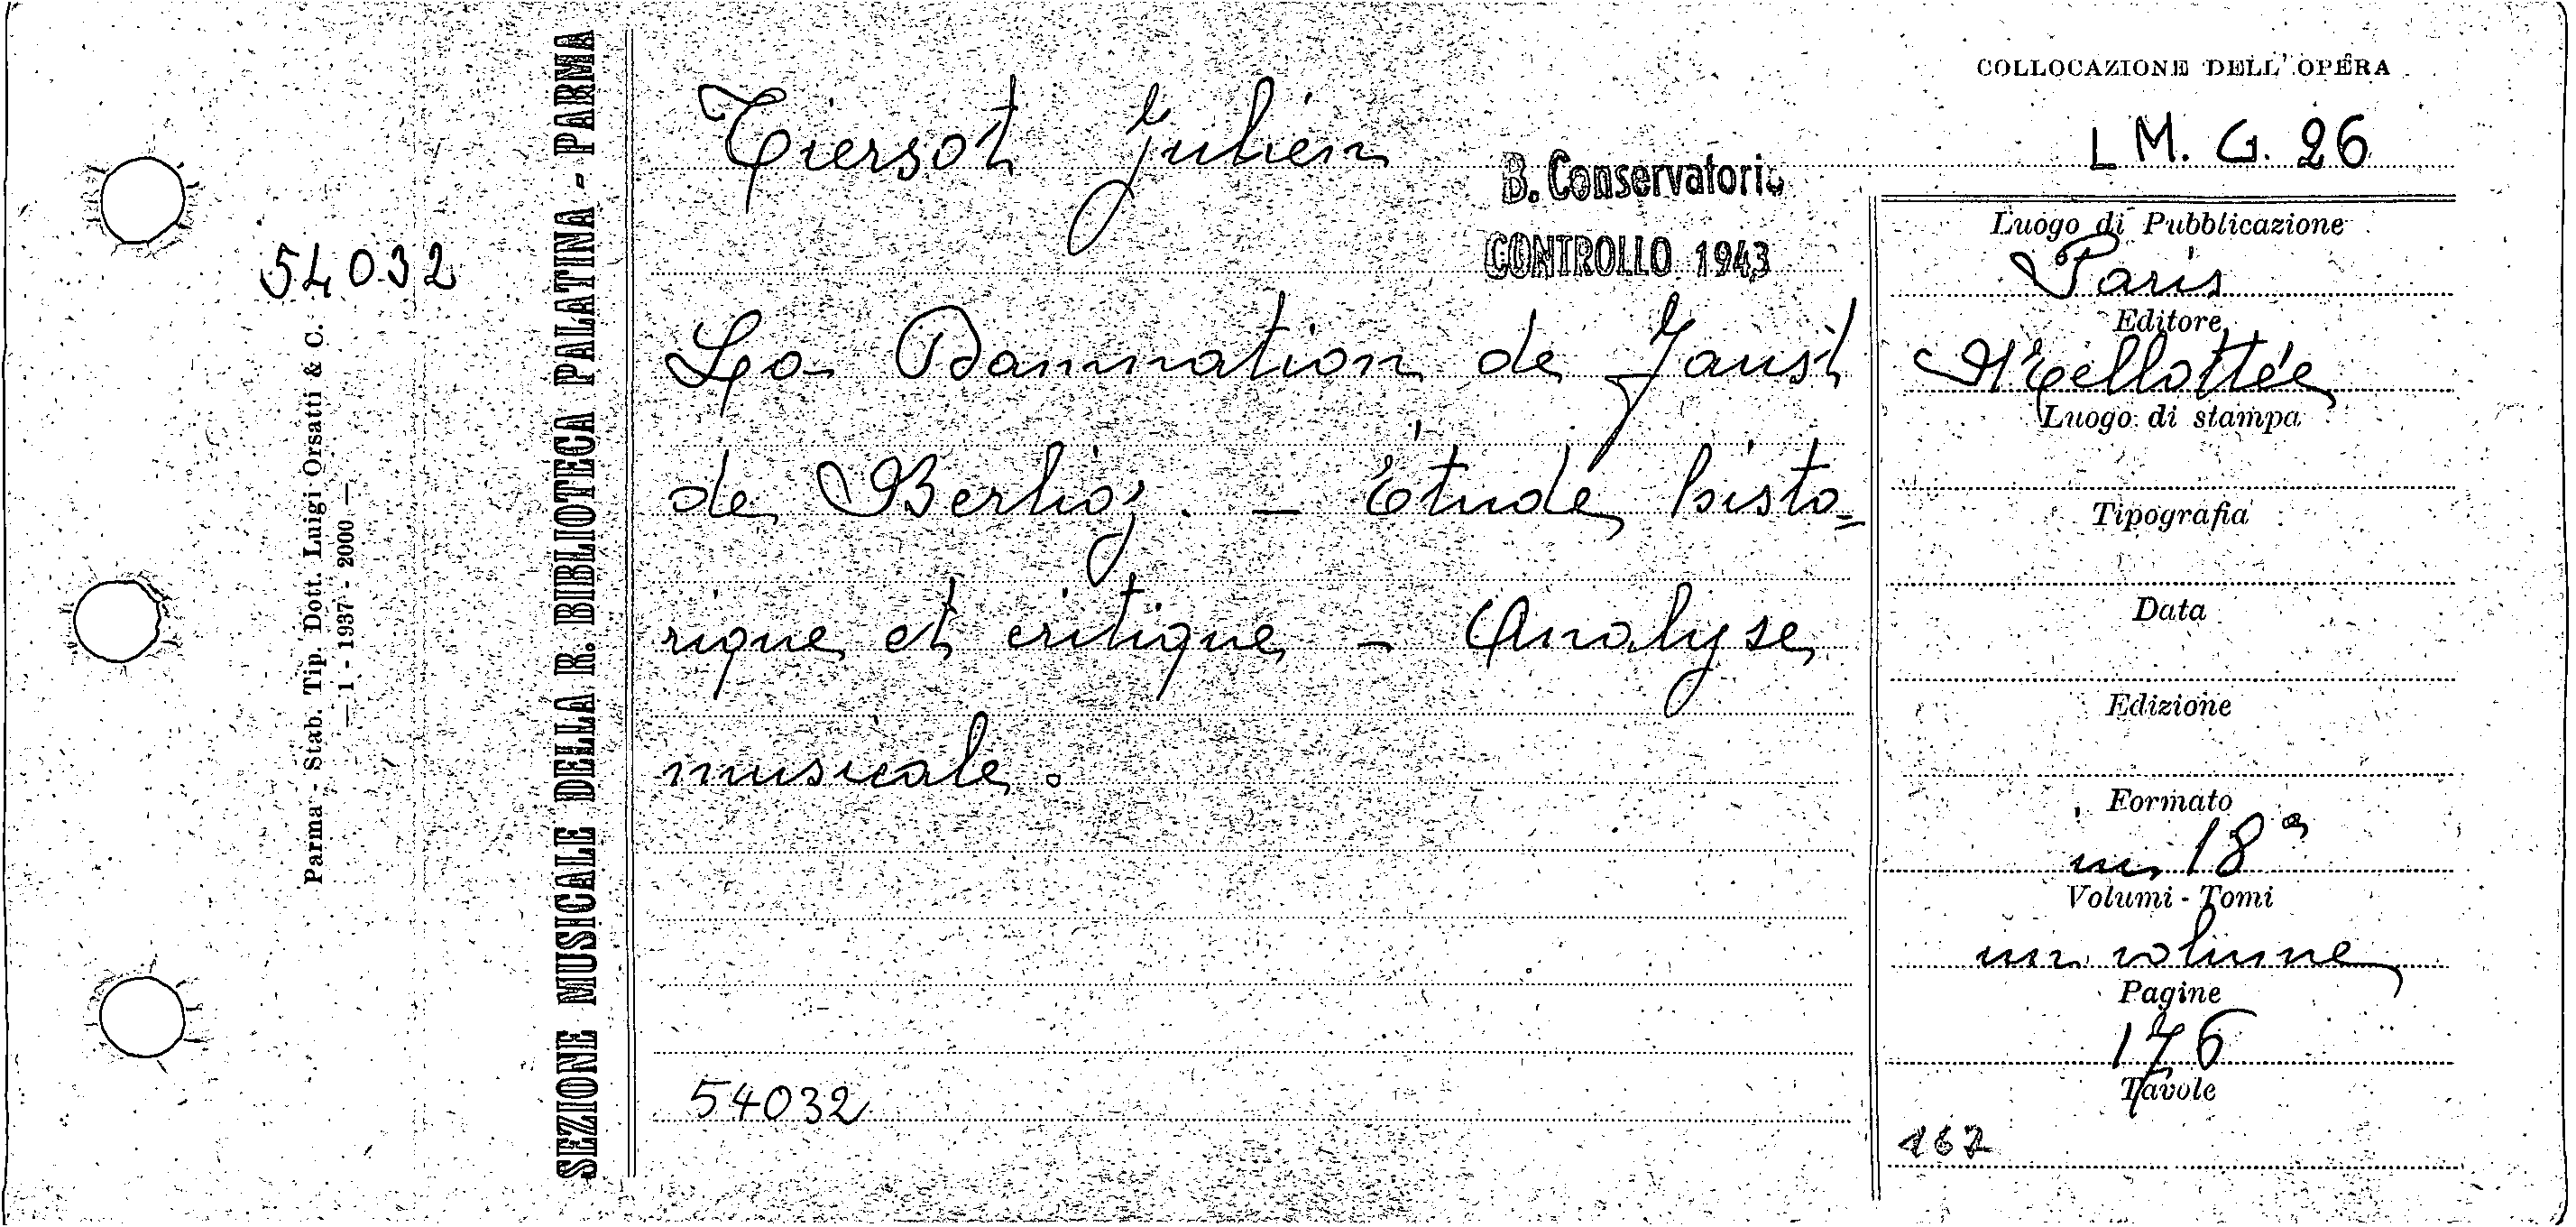 54032
Parma - Stab. Tip. Dott. Luigi Orsatti & C.
— 1 - 1937 - 2000 —
SEZIONE MUSICALE DELLA R. BIBLIOTECA PALATINA - PARMA
Tiersot Julien
B. Conservatorio
CONTROLLO 1943
La Damnation de Faust
de Berlioz. - Étude histo-
rique et critique - Analyse
musicale.
54032
COLLOCAZIONE DELL'OPERA
L M. G. 26
Luogo di Pubblicazione
Paris
Editore
Mellottée
Luogo di stampa
Tipografia
Data
Edizione
Formato
in 18°
Volumi - Tomi
un volume
Pagine
176
Tavole
167